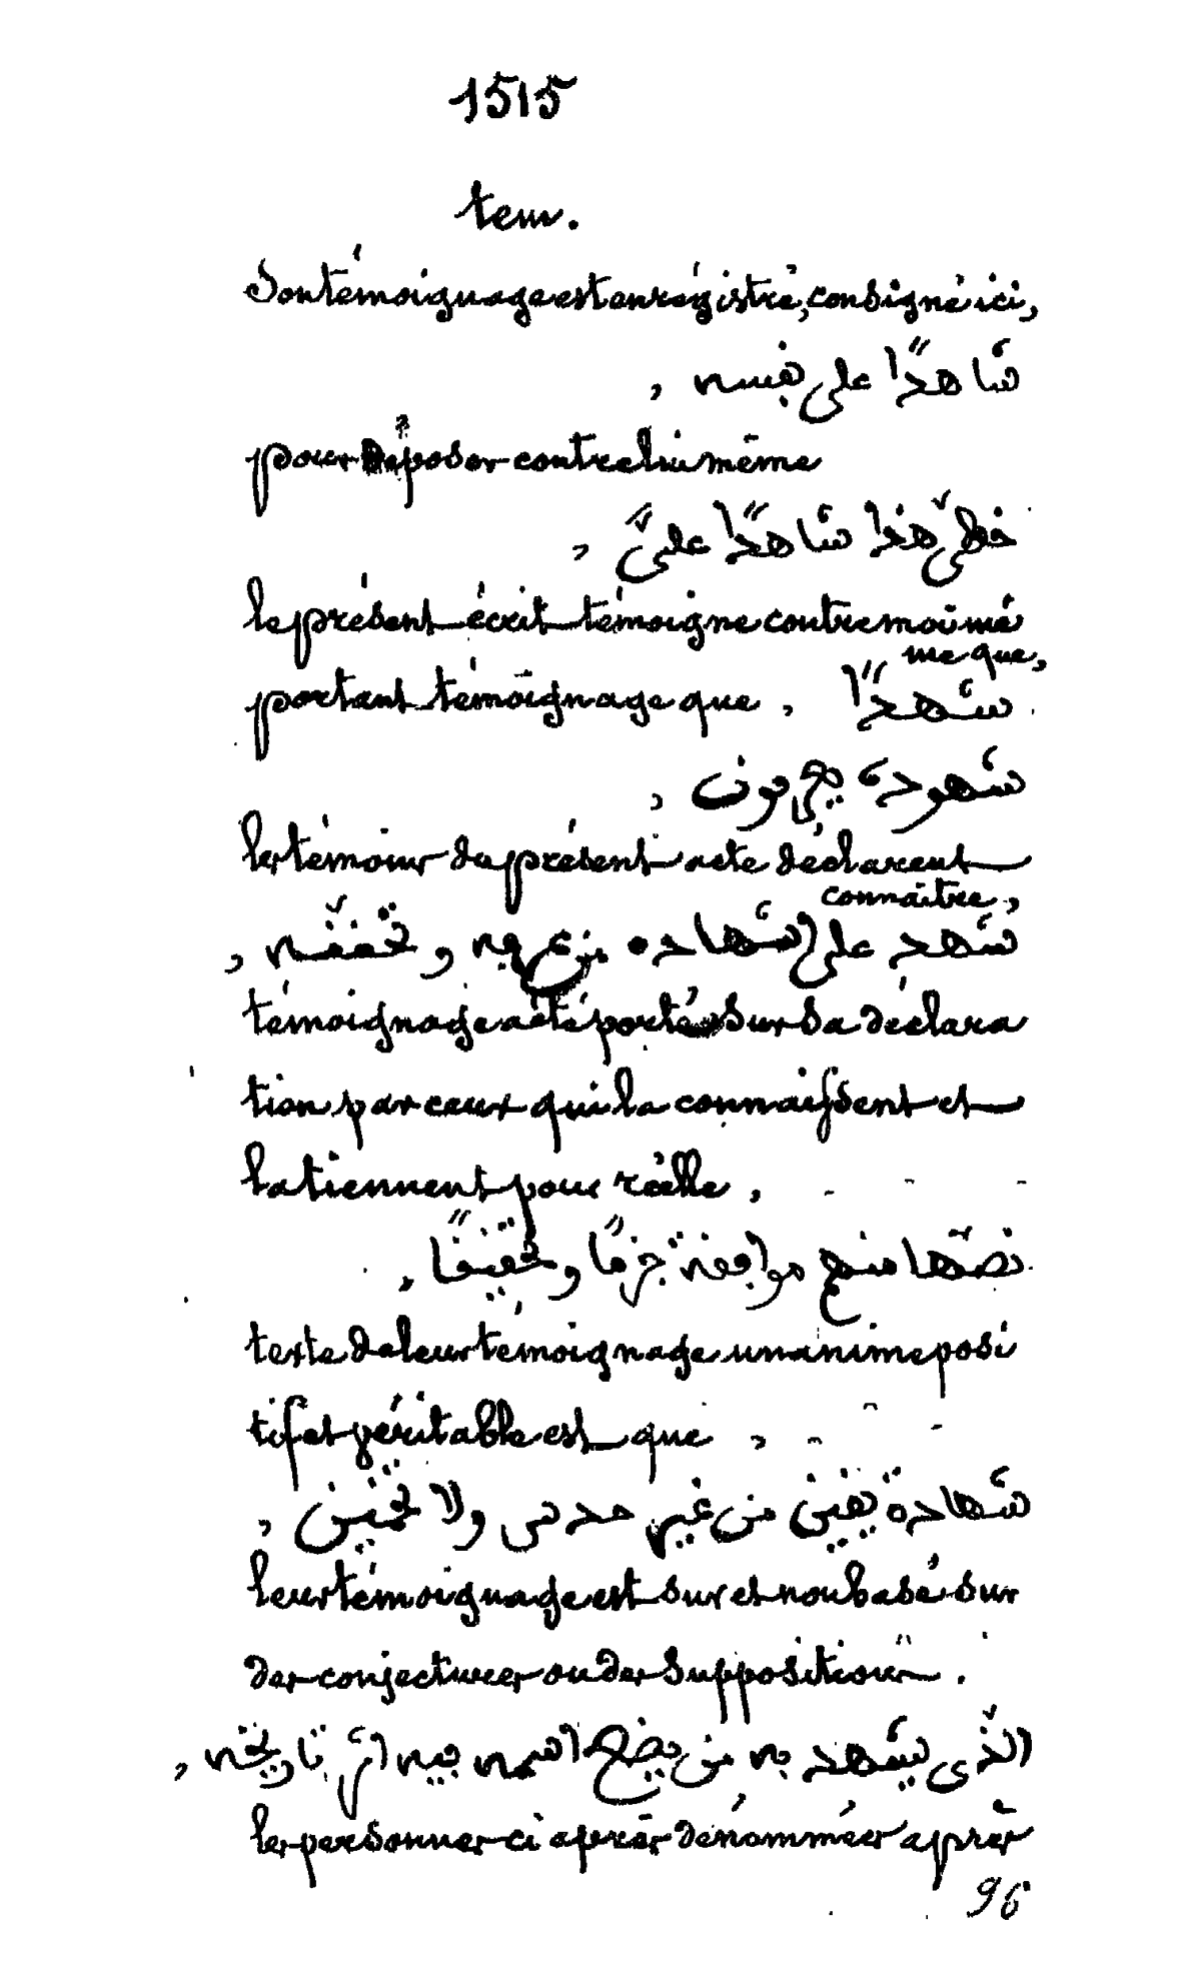 1515
tem.
Son témoignage est enrégistré, consigné ici,
شاهدًا على نفسه ,
pour déposer contre lui même
خطّى هذا شاهدًا علىّ ,
le présent écrit témoigne contre moi mê
me que,
portant témoignage que , شهدًا
شهوده يعرفون ,
les témoins du présent acte déclarent
connaître,
شهد على اشهاده من عرفه وتحققه ,
témoignage a été porté sur sa déclara
tion par ceux qui la connaissent et
la tiennent pour réelle ,
نصّها منهم موافقة جزمًا وتحقيقًا ,
texte de leur témoignage unanime posi
tif et véritable est que ,
شهادة يقين من غير حدس ولا تخمين ,
leur témoignage est sur et non basé sur
des conjectures ou des suppositions .
الّذى يشهد به من يضع اسمه فيه اثر تاريخه ,
les personnes ci après dénommées après
96